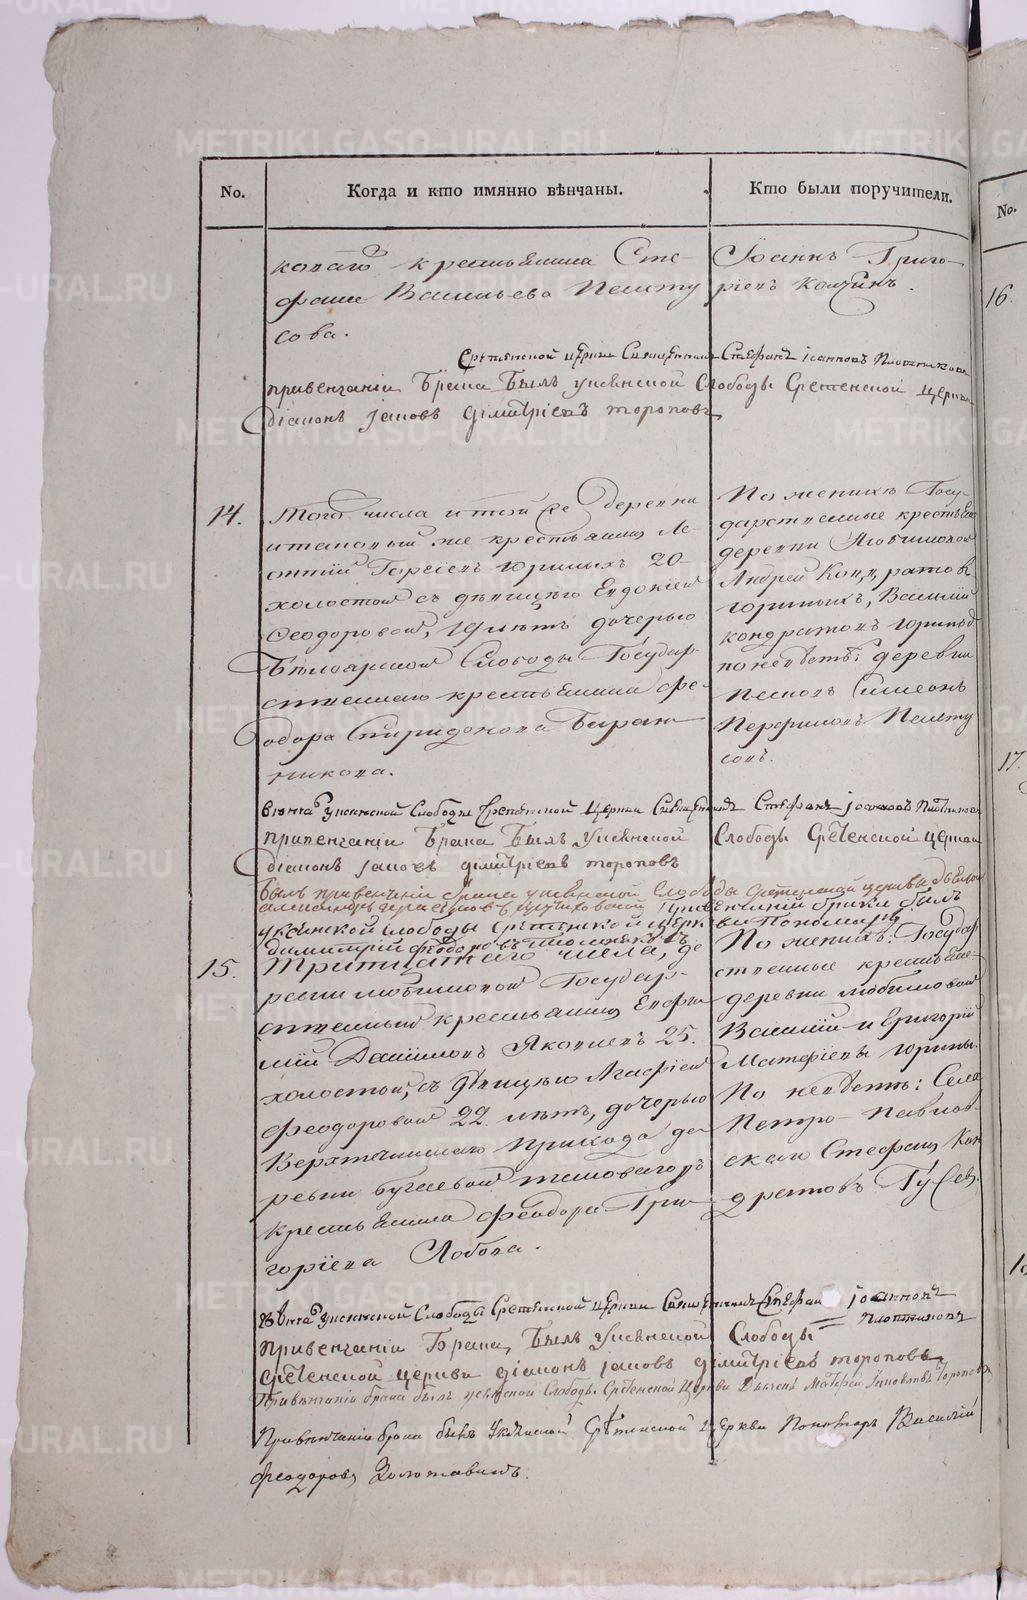 No.
Когда и кто имянно вѣнчаны.
Кто были поручители.
No.
коваго крестьянина Сте-
фана Васильева Пешту
сова.
Іоаннъ Григо-
ріевъ
Срѣтенской церкви Священникъ Стефанъ Іоанновъ Плотниковъ
привенчаніи Брака Былъ уксянской Слободы Сретенской церкви
діаконъ Іаковъ Дімитріевъ тороповъ
14.
Того числа и той же деревни
и таковый же крестьянинъ Ле-
онтій Юриныхъ 20
холостой съ дѣвицею Евдокіею
Феодоровой, 19 лѣтъ дочерью
Бѣлоярской Слободы Государ-
ственнаго крестьянина Фе-
одора Спиридонова Баран-
никова.
По женихѣ Госу-
дарственные крестьяне
деревни Любимовой
Андрей Кондратовъ
Юриныхъ, Василій
Кондратовъ Юриныхъ
по невѣстѣ: деревни
Симеонъ
Перфиловъ Пешту
совъ.
вѣнчалъ уксянской Слободы Срѣтенской Церкви Священникъ Стефанъ Іоанновъ Плотниковъ
привенчаніи Брака Былъ Уксянской Слободы Сретенской церкви
діаконъ Іаковъ дімитріевъ тороповъ
былъ привенчаніи брака уксянской Слободы Сретенской церкви
привенчаніи брака былъ
уксянской слободы Сретенской церкви Пономарь
Димитрій Феодоровъ
15.
Тритцатаго числа, де
ревни Любимовой Государ-
ственный крестьянинъ Евфи
мій Даниловъ Яковлевъ 25.
холостой, съ дѣвицею Агафіею
Феодоровой 22. лѣтъ, дочерью
Верхтеченскаго прихода де-
ревни Бугаевой таковаго жъ
крестьянина Феодора Гри
горіева Лобова.
По женихѣ: Государ
ственные крестьяне
деревни Любимовой
Василій и Григорій
Матфіевы Юрины.
По невѣстѣ: Села
Петро-Павлов-
скаго Стефанъ Кон
дратовъ Гусев.
Вѣнчалъ уксянской Слободы Срѣтенской церкви Священникъ Стефанъ Іоанновъ
Плотниковъ
привенчаніи Брака, Былъ Уксянской Слободы
Сретенской церкви діаконъ Іаковъ дімитріевъ тороповъ
Привѣнчаніи брака былъ уксянской Слободы Сретенской Церкви Дьячекъ Матфей Іаковлевъ Тороповъ
Привѣнчаніи брака былъ Уксянской Срѣтенской Церкви Пономарь Василій
Феодоровъ Золотавинъ.
16.
17.